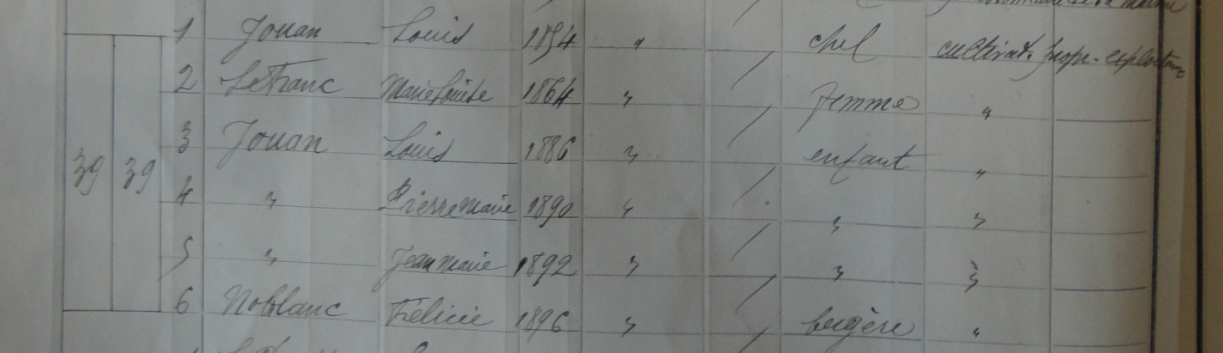 1 Jouan Louis 1854 " / chef cultivat. propr-exploitant
2 Lefranc Marie Louise 1864 " / femme "
3 Jouan Louis 1886 " / enfant "
39 39
4 " Pierre Marie 1890 " / " "
5 " Jean Marie 1892 " / " "
6 Noblanc Félicie 1896 " / bergère "